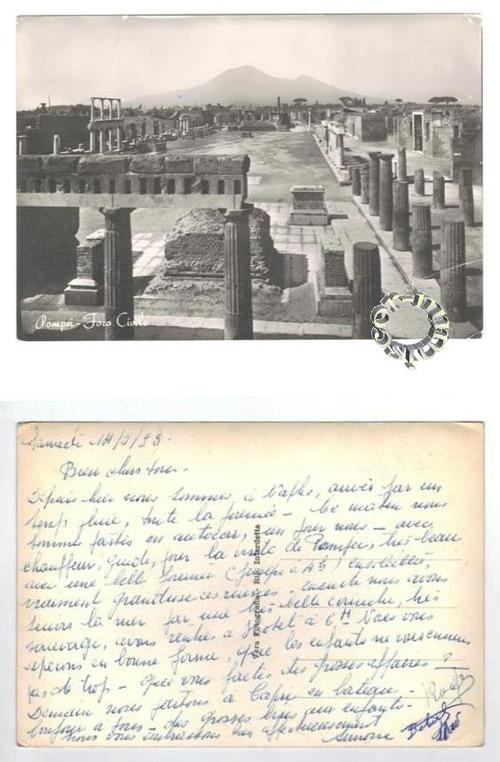 Pompei - Foro Civile
Samedi
Bien chers tous.
Depuis hier nous sommes à Naples, arrivés par un
temps pluie, toute la journée - Ce matin nous
sommes partis en autocar, pour nous - avec
chauffeur, guide, pour la visite de Pompei, très beau
avec une belle
vraiment grandiose ces ruines - ensuite nous avons
la mer par une très belle corniche, très
sauvage, avons rentrés à l'hotel à 6H Nous vous
espérons en bonne forme, que les enfants ne vous
pas de trop - Que vous faites des grosses affaires
Demain nous partons à Capri en bateau -
bonjour à tous - des grosses bises aux enfants -
nous vous embrassons bien affectueusement
Simone
Vera Fotografia - Rip. Interdetta